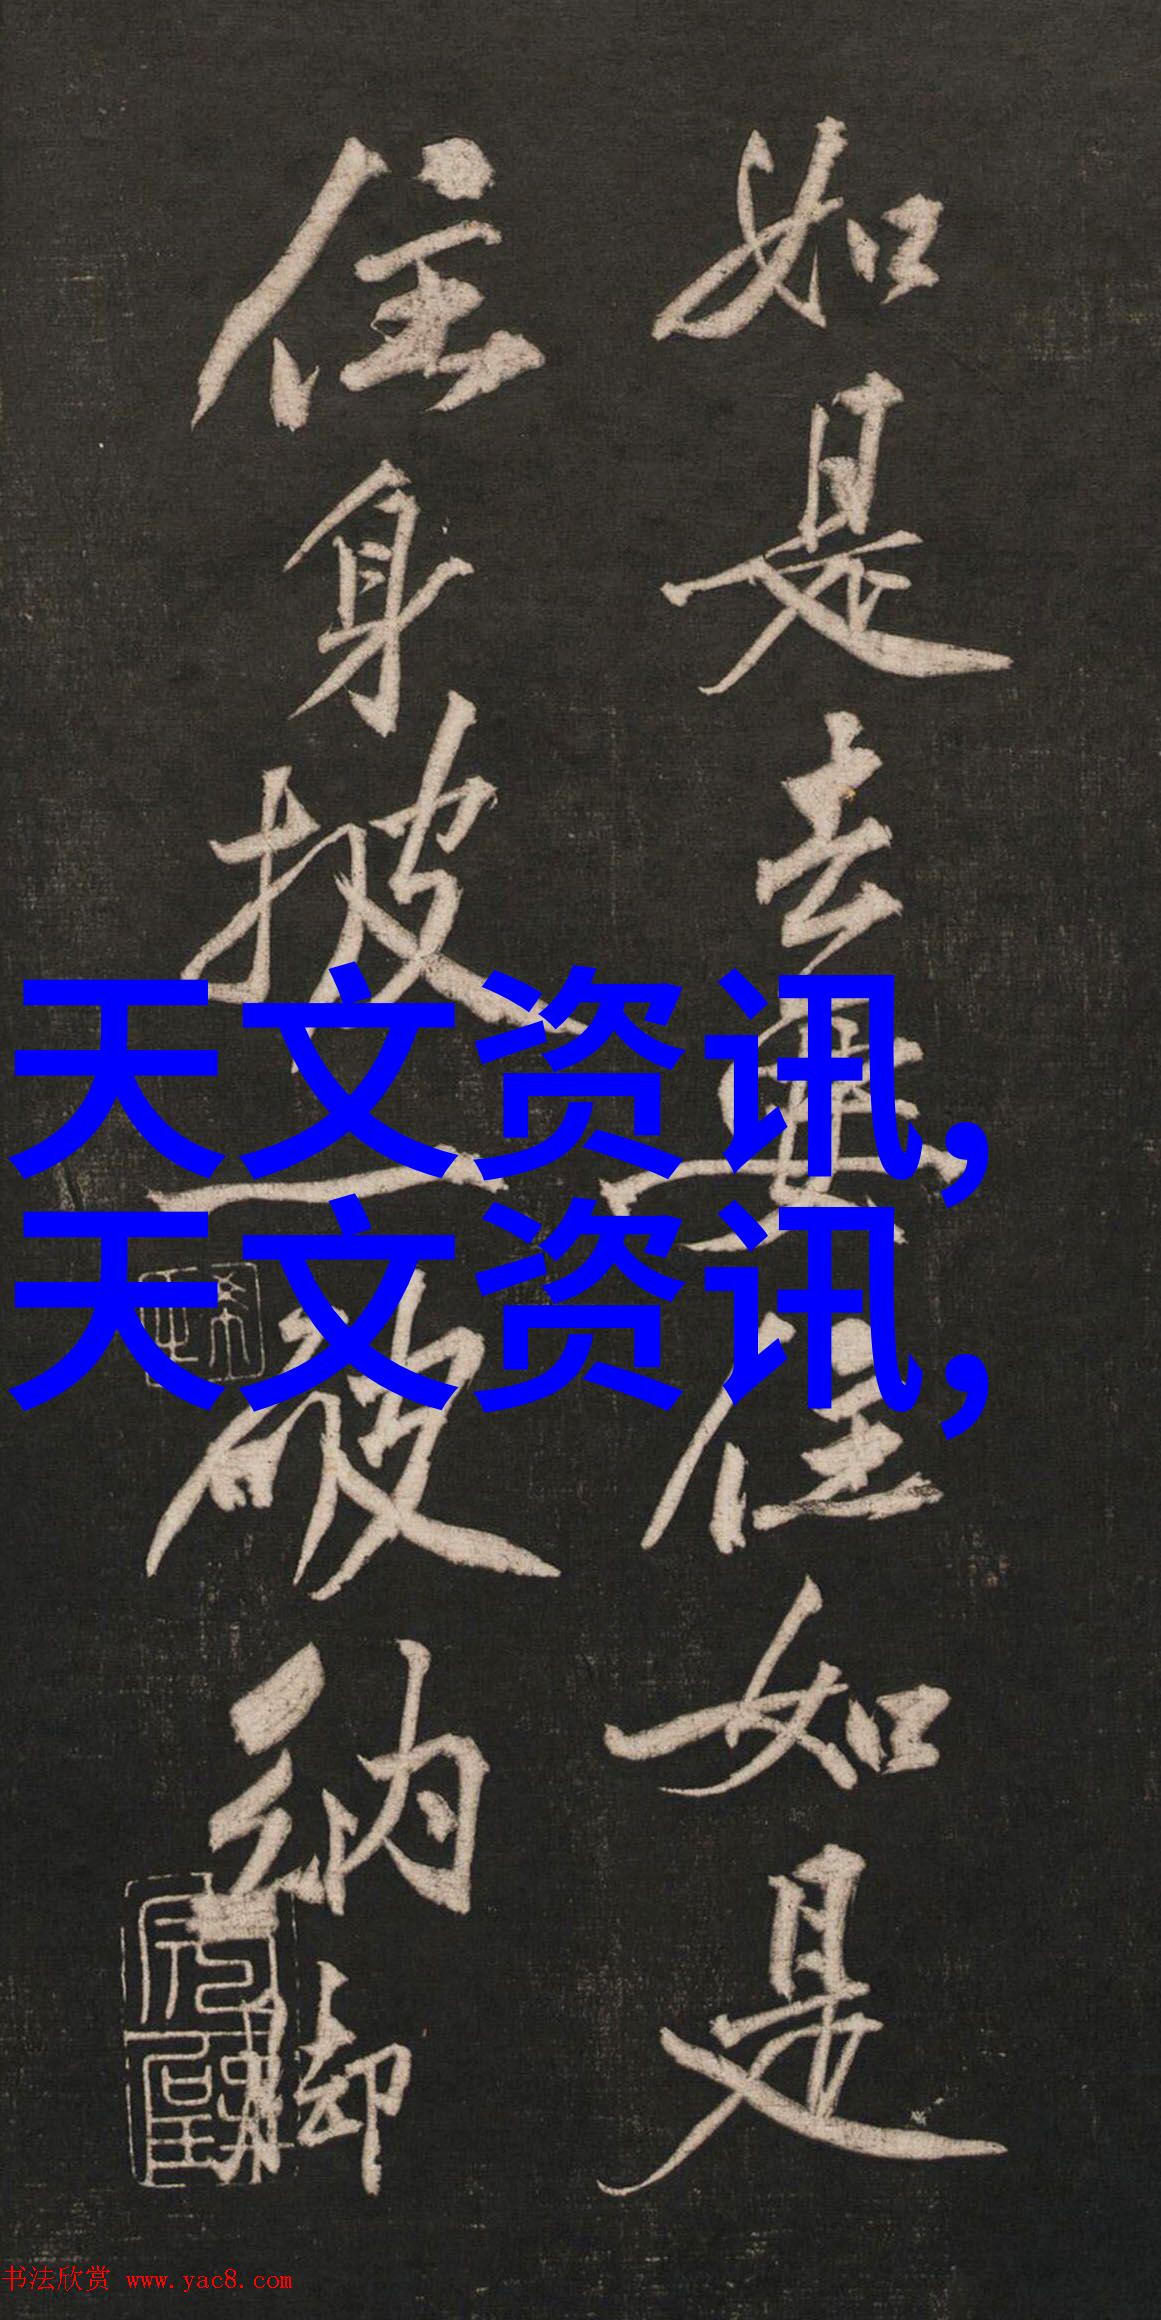 如是去要住如是
住身披一破衲脚
天文资讯,
天文资讯,
书法欣赏 www.yac8.com